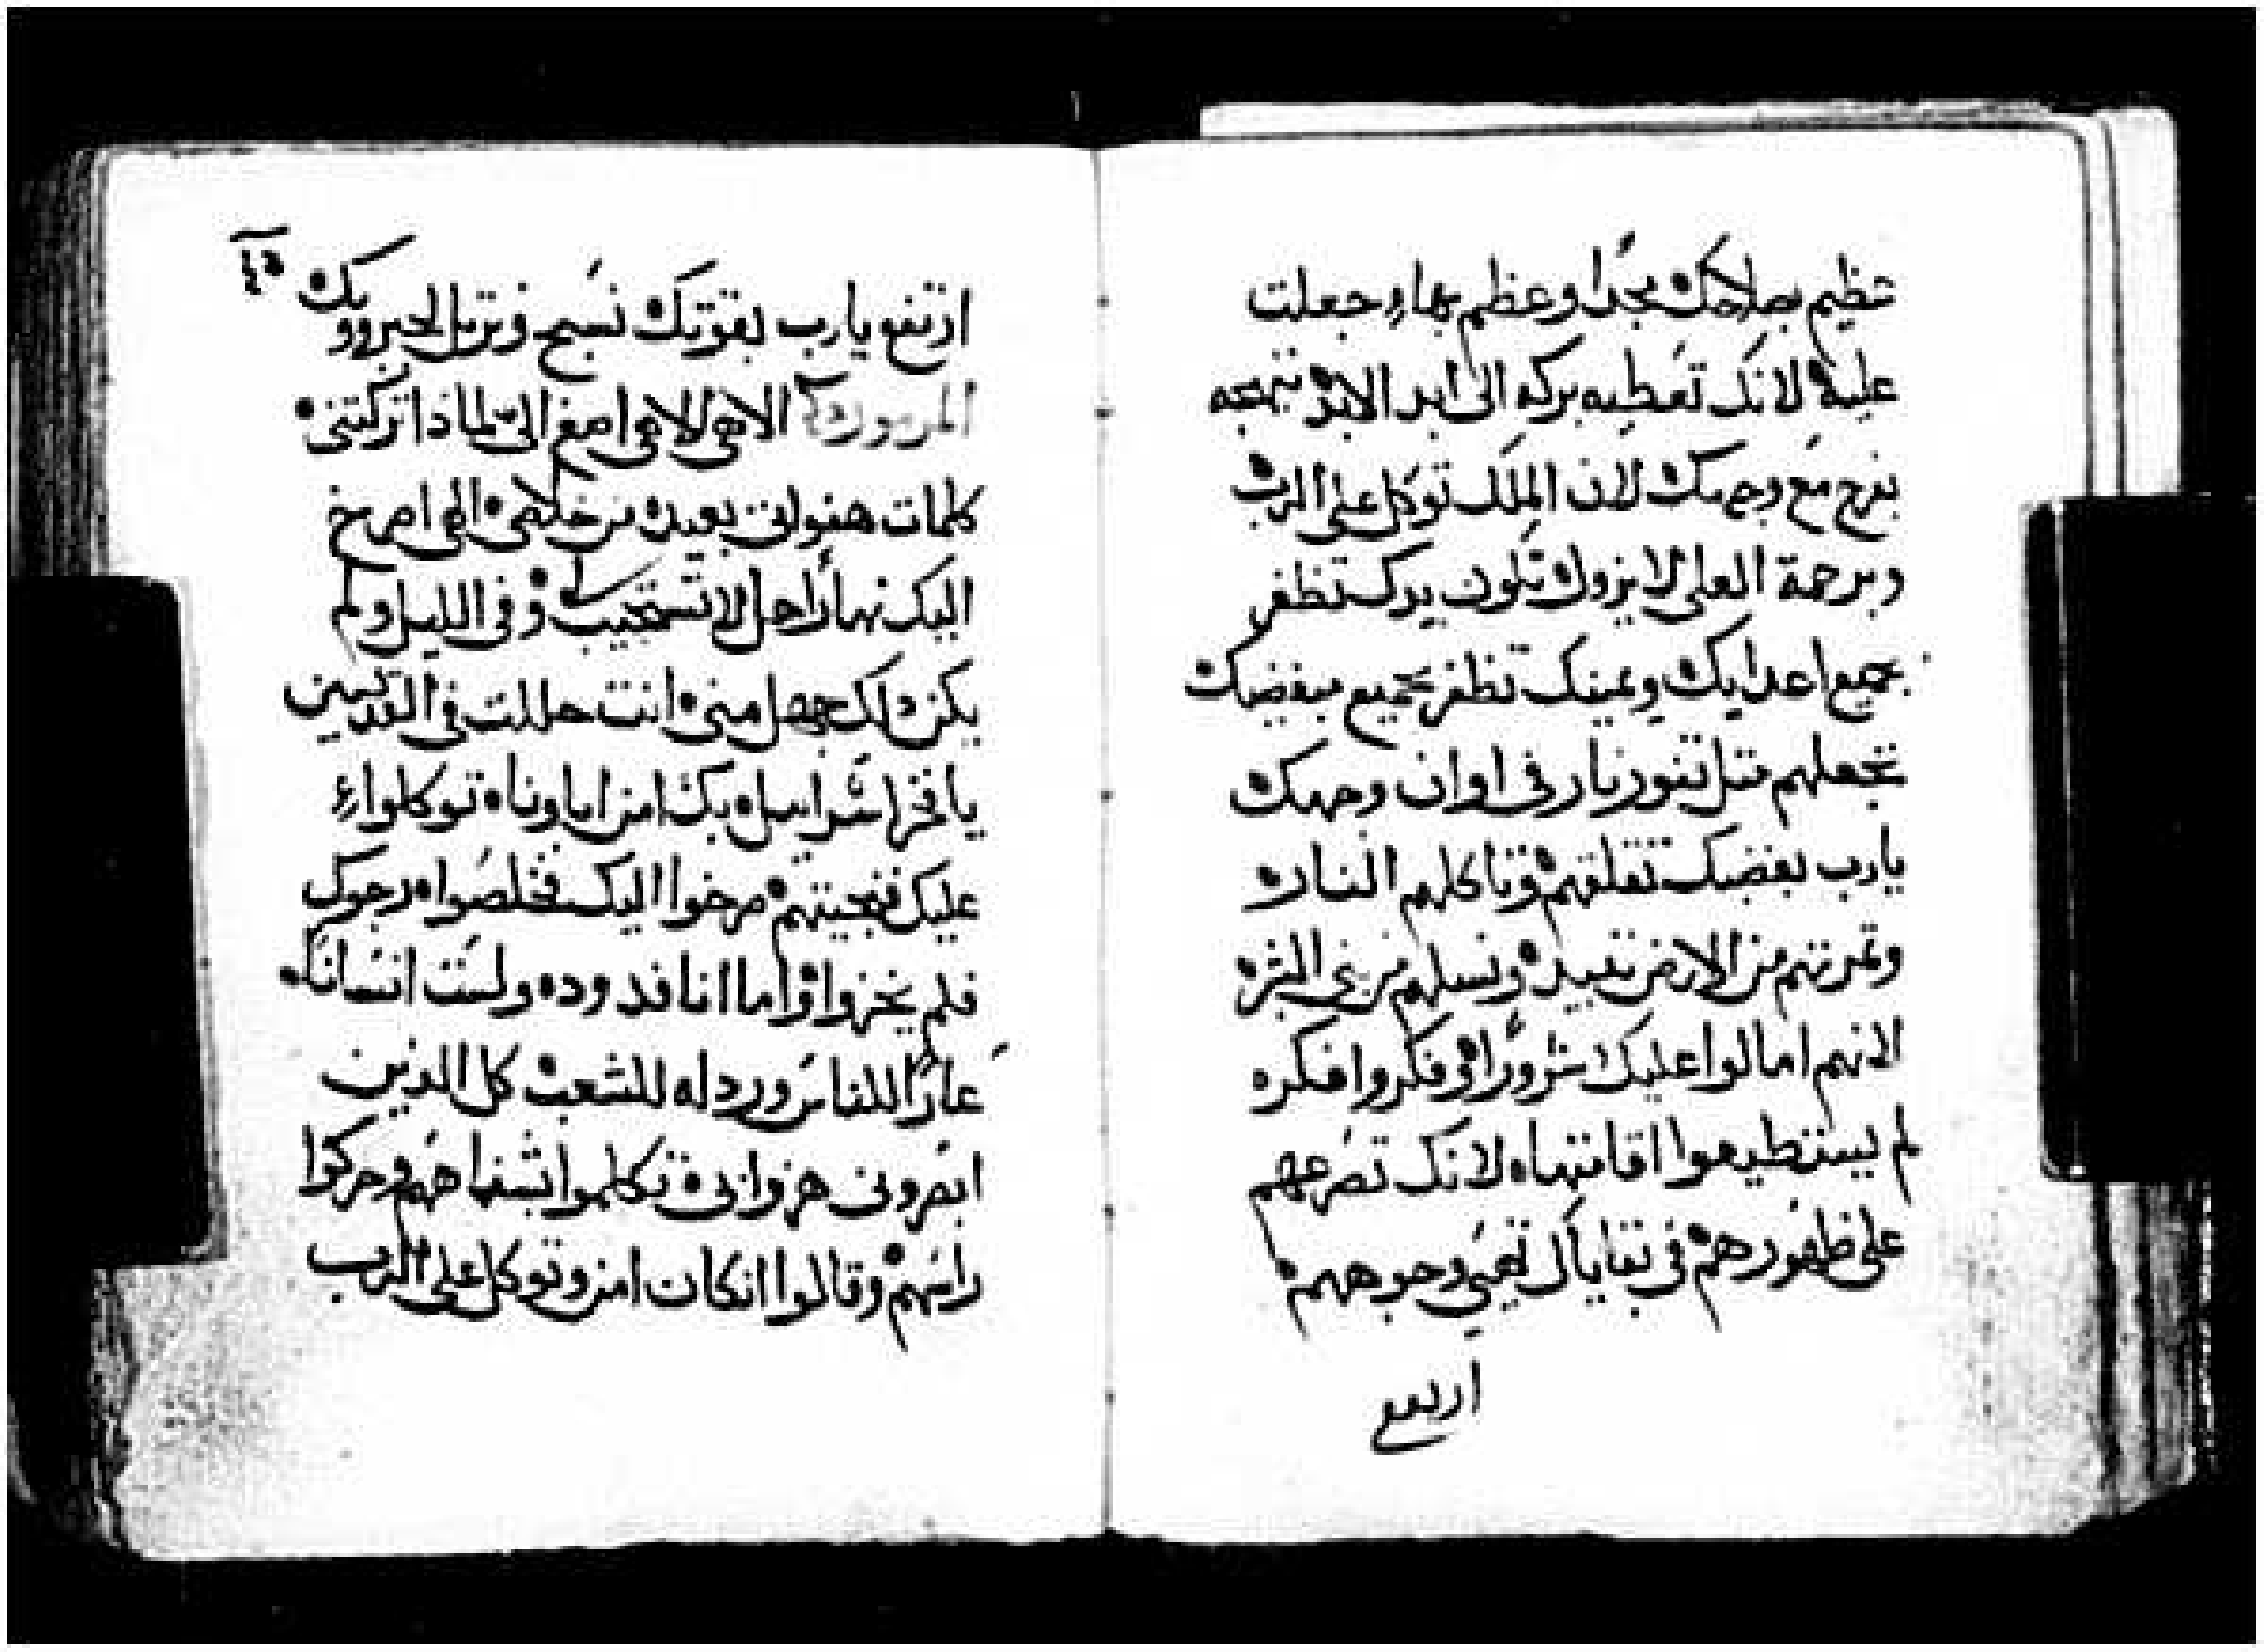 عظيم بصلاحك مجدًا وعظم بهاءٍ جعلت
عليه لانك تعطيه بركه الى ابد الابد تبهجه
بفرح مع وجهك لان الملك توكل على الرب
وبرحمة العلى لا يزول تكون يدك تظفر
بجميع اعدايك ويمينك تظفر بجميع مبغضيك
تجعلهم مثل تنور نار فى اوان وجهك
يارب بغضبك تقلقهم وتاكلهم النار
وثمرتهم من الارض تبيد ونسلهم من بنى البشر
لانهم امالوا عليك شرورًا وفكروا فكره
لم يستطيعوا اقامتها لانك تصرعهم
على ظهورهم فى بقاياك تهيى وجوههم
اربع
ارتفع يارب بقوتك نسبح ونرتل لجبروتك
المزمور الاهى الاهى امغ الى لماذا تركتنى
كلمات هفواتى بعيده من خلاصى الهى اصرخ
اليك نهارًا هل لا تستجيب لى وفى الليل ولم
يكن لك جهل منى انت حللت فى القديسين
يا فخر اسراييل بك امن اباوناه توكلوا
عليك فنجيتهم صرخوا اليك فخلصوا رجوك
فلم يخزوا واما انا فدوده ولست انسانًا
عارًا للناس ورداله للشعب كل الذين
ابصرونى هزوا بى تكلموا بشفاههم وحركوا
راسهم وقالوا انكان امن وتوكل على الرب